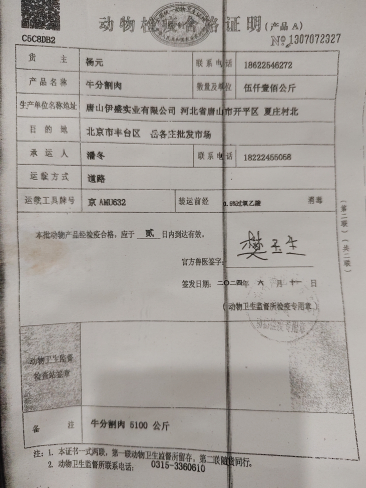 动物检疫合格证明(产品A)
C5C8DB2
№ 1307072327
货主 杨元 联系电话 18622546272
产品名称 牛分割肉 数量及单位 伍仟壹佰公斤
生产单位名称地址 唐山伊盛实业有限公司 河北省唐山市开平区 夏庄村北
目的地 北京市丰台区 岳各庄批发市场
承运人 潘冬 联系电话 18222455058
运载方式 道路
运载工具牌号 京AMU632 装运前经 0.5%过氧乙酸 消毒
本批动物产品经检疫合格,应于 贰 日内到达有效。
官方兽医签字:
签发日期:二〇二四年 六 月 十一 日
(动物卫生监督所检疫专用章)
动物卫生监督
检查站签章
备注 牛分割肉 5100 公斤
注:1. 本证书一式两联,第一联动物卫生监督所留存,第二联随货同行。
2. 动物卫生监督所联系电话: 0315-3360610
(第二联)(共二联)